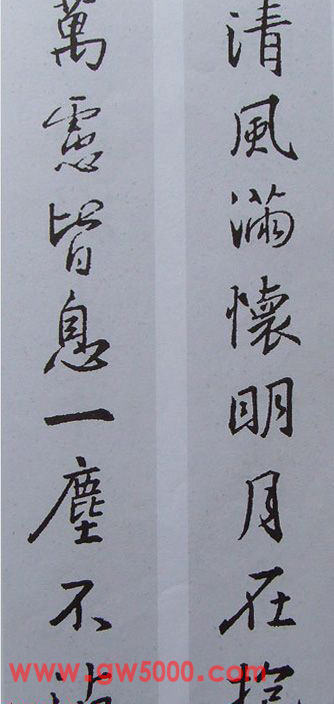 清風滿懷明月在抱
萬慮皆息一塵不沾
www.gw5000.com